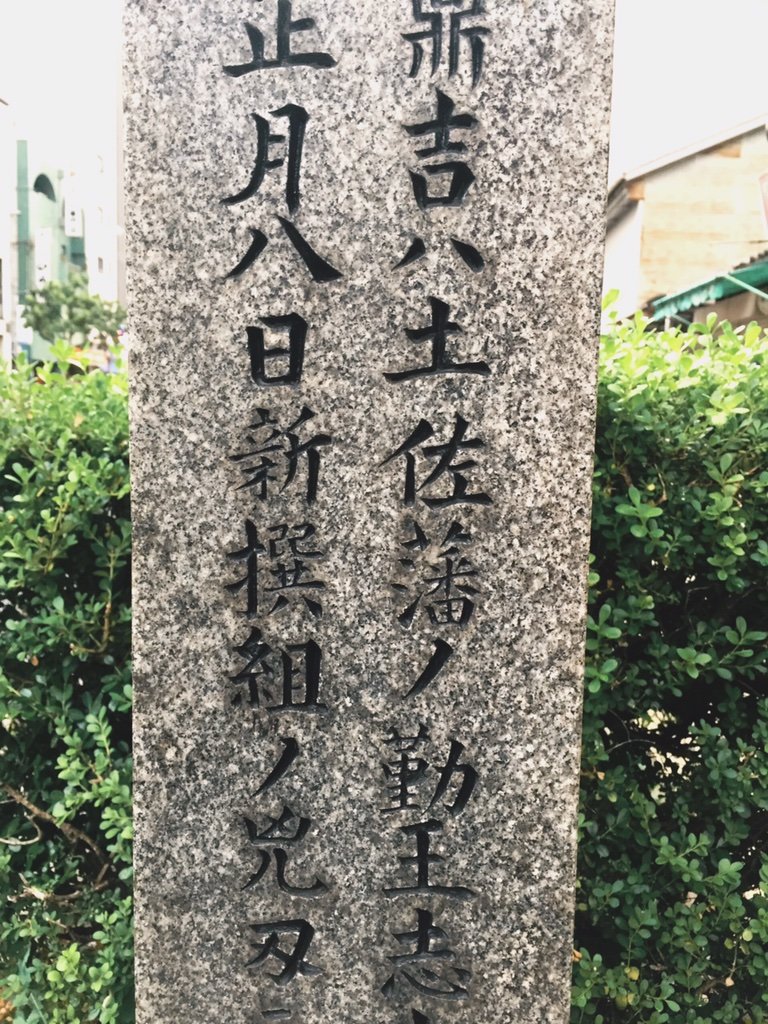 鼎吉ハ土佐藩ノ勤王志
正月八日新撰組ノ兇刃ニ